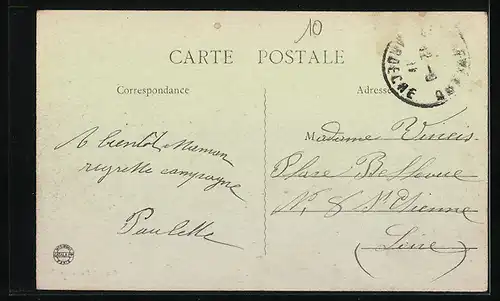 10
CARTE POSTALE
Correspondance
Adresse
ARDECHE
A bientôt Maman
regrette campagne
Paulette
Madame Vincis
Place Bellevue
No 8 St Etienne
(Loire)